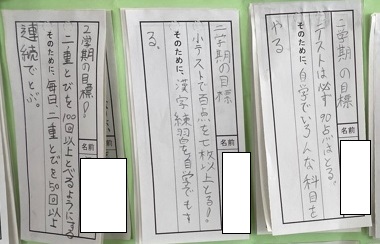 二学期の目標
名前
テストは必ず90点はとる。
そのために、自学でいろんな科目を
やる
二学期の目標
名前
小テストで百点を七枚以上とる!
そのために、漢字練習を自学でもす
る。
2学期の目標!
名前
二重とびを100回以上とべるようにする
そのために、毎日、二重とびを50回以上
連続でとぶ。